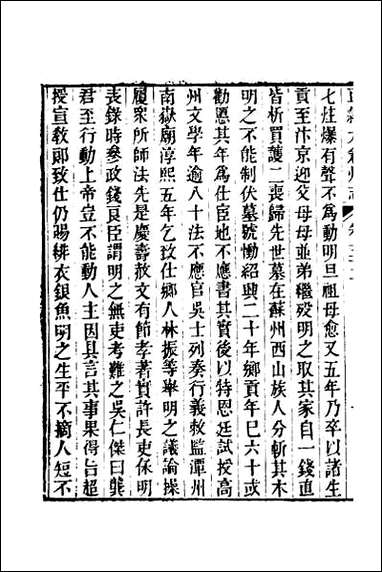 七炷爆有聲不爲動明旦祖母愈又五年乃卒以諸生
貢至汴京迎父母母並弟繼殁明之取其家自一錢直
皆析買護二喪歸先世墓在蘇州西山族人分斬其木
明之不能制伏墓號慟紹興二十年鄉貢年已六十或
勸愿其年爲仕臣地不應書其實後以特恩廷試授高
州文學年逾八十法不應官吳士列奏行義敕監潭州
南嶽廟淳熙五年乞致仕鄉人林振等舉明之議論操
履衆所師法先是慶壽赦文有節孝著實許長吏保明
表錄時參政錢良臣謂明之無吏考難之吳仁傑曰龔
君至行動上帝豈不能動人主因具言其事果得旨超
授宣敎郞致仕仍賜緋衣銀魚明之生平不摘人短不